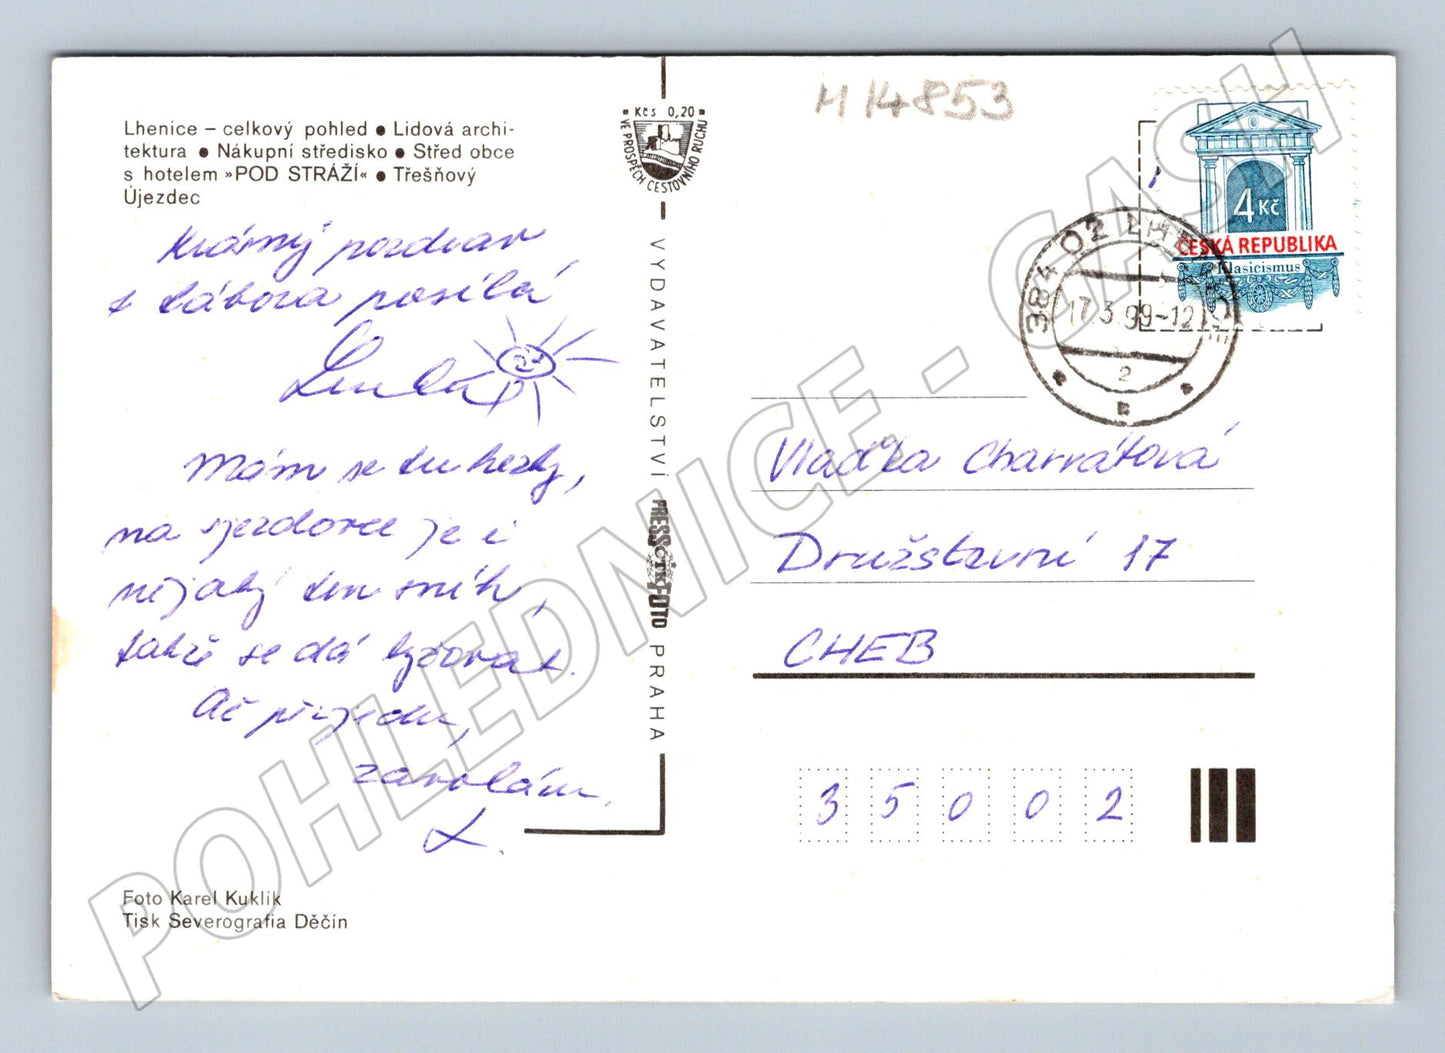 Lhenice – celkový pohled ● Lidová archi-
tektura ● Nákupní středisko ● Střed obce
s hotelem »POD STRÁŽÍ« ● Třešňový
Újezdec
Kčs 0,20
VE PROSPĚCH CESTOVNÍHO RUCHU
M 14853
4 Kč
ČESKÁ REPUBLIKA
Klasicismus
384 02 LHENICE
17.3.99-12
2
Krásný pozdrav
z tábora posílá
Lenka
Mám se tu hezky,
na sjezdovce je i
nějaký ten sníh,
takže se dá lyžovat.
Až přijedu,
zavolám.
L.
VYDAVATELSTVÍ PRESSFOTO PRAHA
ČTK
Vlaďka Charvátová
Družstevní 17
CHEB
35002
Foto Karel Kuklík
Tisk Severografia Děčín
POHLEDNICE - GASH